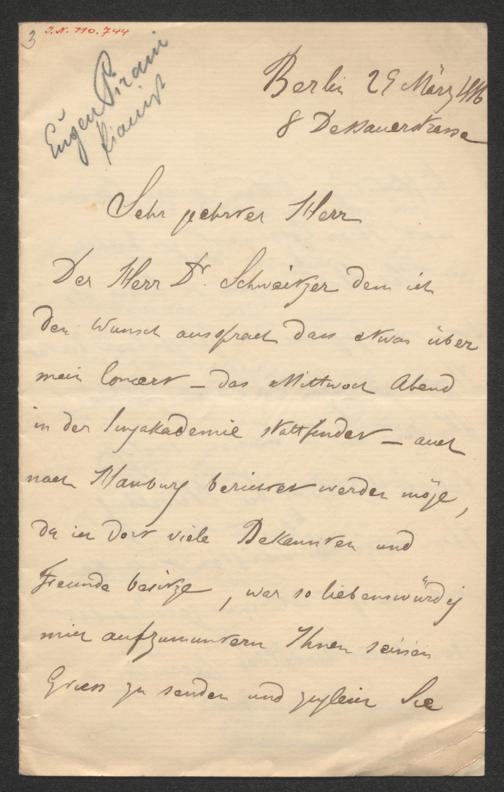 3
J.N. 110.744
Eugen Pirani
Pianist
Berlin 29 März
8 Dessauerstrasse
Sehr geehrter Herr
Der Herr Dr. Schweitzer dem ich
den Wunsch aussprach dass etwas über
mein Concert – das Mittwoch Abend
in der Singakademie stattfindet – auch
nach Hamburg berichtet werden möge,
da ich dort viele Bekannten und
Freunde besitze, war so liebenswürdig
mich aufzumuntern Ihnen seinen
Gruss zu senden und zugleich Sie